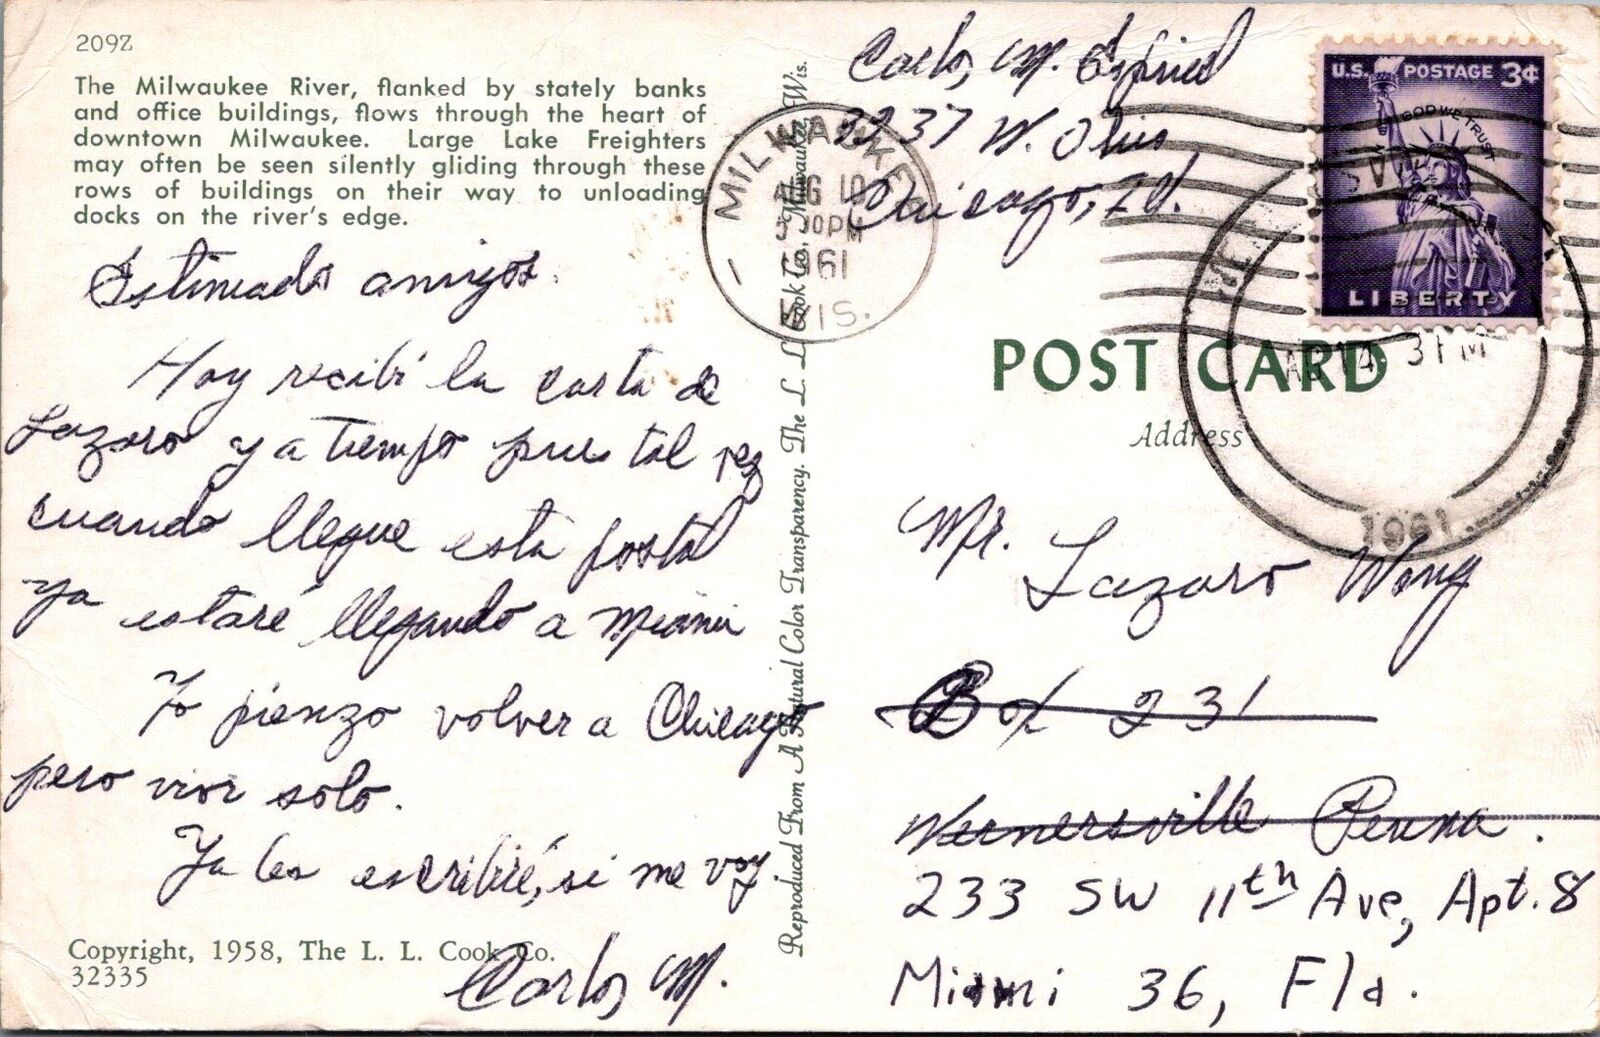 209Z
The Milwaukee River, flanked by stately banks
and office buildings, flows through the heart of
downtown Milwaukee. Large Lake Freighters
may often be seen silently gliding through these
rows of buildings on their way to unloading
docks on the river's edge.
Estimados amigos.
Hoy recibí la carta de
Lazaro y a tiempo pues tal vez
cuando llegue esta postal
ya estaré llegando a Miami
Yo pienzo volver a Chicago
pero vivir solo.
Ya les escribiré, si me voy
Carlos M.
Copyright, 1958, The L. L. Cook Co.
32335
Reproduced From A Natural Color Transparency. The L. L. Cook Co., Milwaukee, Wis.
Carlos M.
3237 W. Ohio
Chicago, Ill.
MILWAUKEE
AUG 10
30PM
1961
WIS.
U.S. POSTAGE 3¢
IN GOD WE TRUST
LIBERTY
POST CARD
Address
AUG 14 3 PM
1961
Mr. Lazaro Wong
Box 231
Wernersville Penna.
233 SW 11th Ave, Apt. 8
Miami 36, Fla.